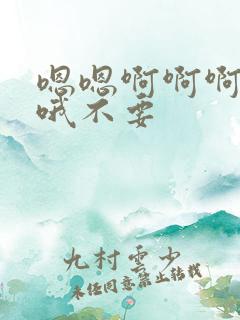 嗯嗯啊啊啊
哦不要
九村雲少
未经同意禁止转载